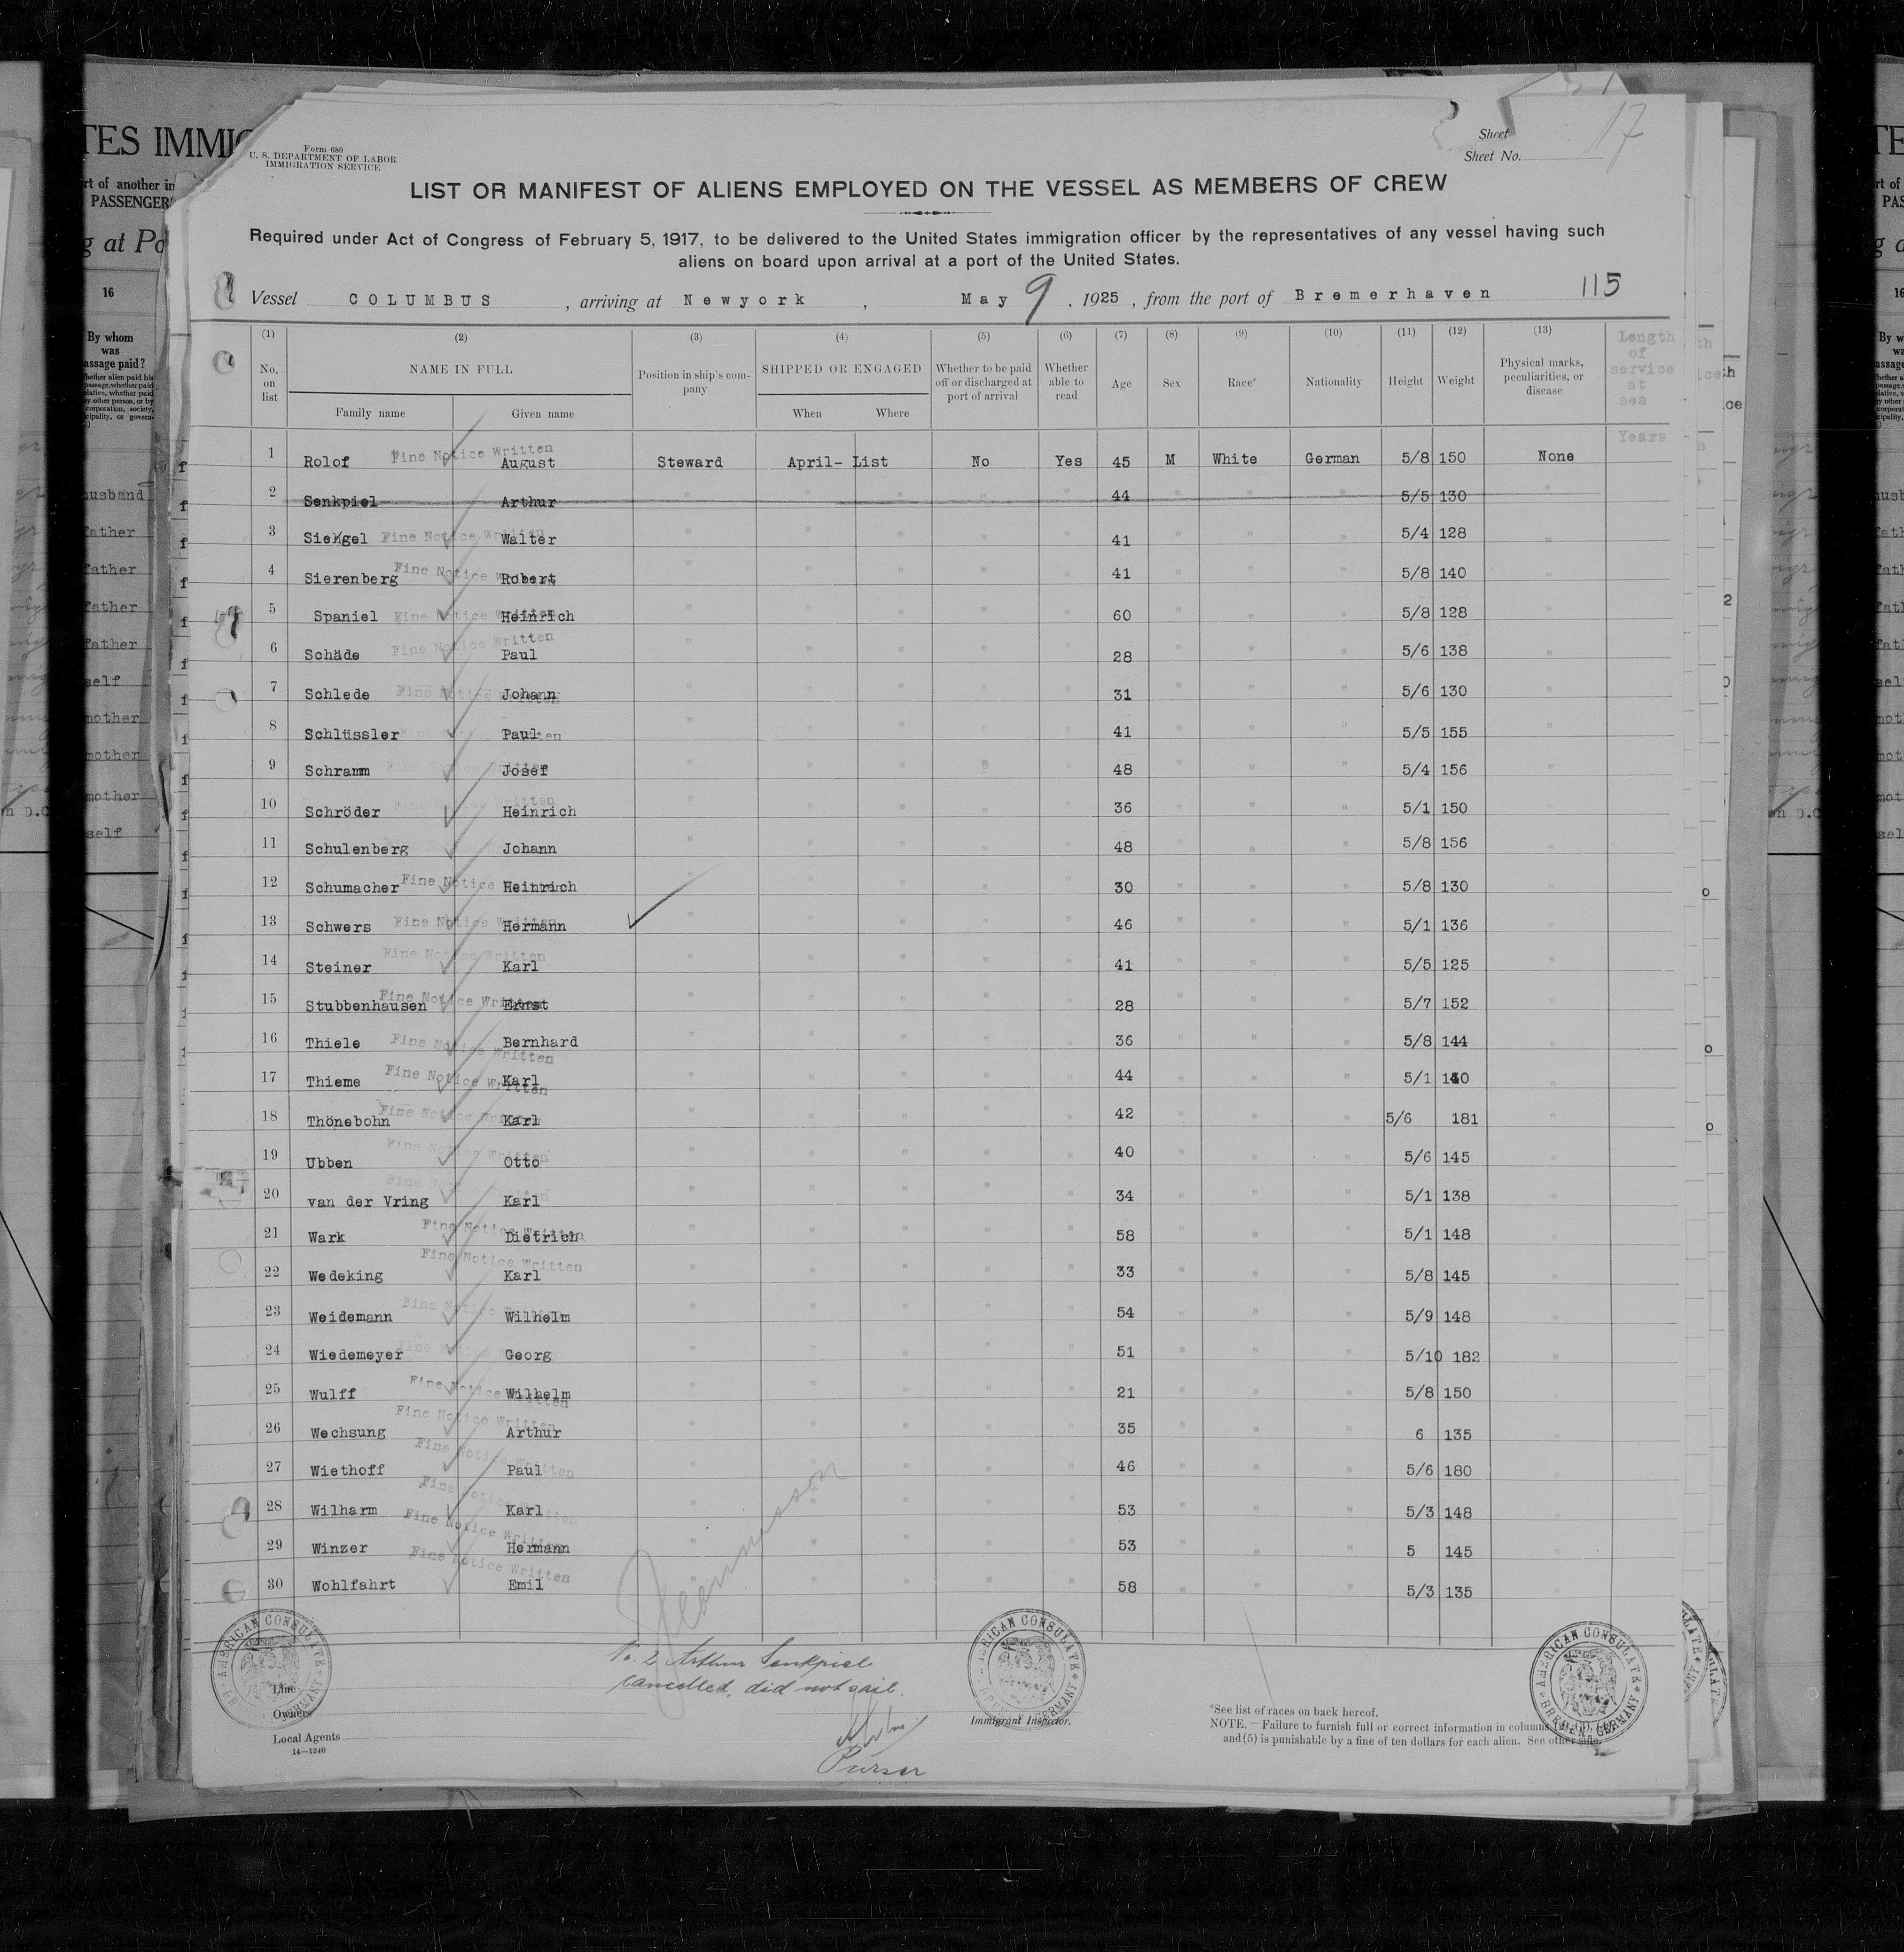 Form 680
U. S. DEPARTMENT OF LABOR
IMMIGRATION SERVICE
Sheet
Sheet No. 17
LIST OR MANIFEST OF ALIENS EMPLOYED ON THE VESSEL AS MEMBERS OF CREW
Required under Act of Congress of February 5, 1917, to be delivered to the United States immigration officer by the representatives of any vessel having such
aliens on board upon arrival at a port of the United States.
Vessel COLUMBUS, arriving at Newyork, May 9, 1925, from the port of Bremerhaven 115
(1) (2) (3) (4) (5) (6) (7) (8) (9) (10) (11) (12) (13)
No. on list NAME IN FULL Family name Given name Position in ship's company SHIPPED OR ENGAGED When Where Whether to be paid off or discharged at port of arrival Whether able to read Age Sex Race* Nationality Height Weight Physical marks, peculiarities, or disease Length of service at sea Years
1 Rolof Fine Notice Written August Steward April- List No Yes 45 M White German 5/8 150 None
2 Senkpiel Arthur " " " " " 44 " " " 5/5 130 "
3 Siegel Fine Notice Written Walter " " " " " 41 " " " 5/4 128 "
4 Sierenberg Fine Notice Robert " " " " " 41 " " " 5/8 140 "
5 Spaniel Fine Notice Written Heinrich " " " " " 60 " " " 5/8 128 "
6 Schäde Fine Notice Written Paul " " " " " 28 " " " 5/6 138 "
7 Schlede Fine Notice Written Johann " " " " " 31 " " " 5/6 130 "
8 Schlüssler Paul " " " " " 41 " " " 5/5 155 "
9 Schramm Fine Notice Written Josef " " " " " 48 " " " 5/4 156 "
10 Schröder Fine Notice Written Heinrich " " " " " 36 " " " 5/1 150 "
11 Schulenberg Johann " " " " " 48 " " " 5/8 156 "
12 Schumacher Fine Notice Heinrich " " " " " 30 " " " 5/8 130 "
13 Schwers Fine Notice Written Hermann " " " " " 46 " " " 5/1 136 "
14 Steiner Fine Notice Written Karl " " " " " 41 " " " 5/5 125 "
15 Stubbenhausen Fine Notice Written Ernst " " " " " 28 " " " 5/7 152 "
16 Thiele Fine Notice Written Bernhard " " " " " 36 " " " 5/8 144 "
17 Thieme Fine Notice Written Karl " " " " " 44 " " " 5/1 "
18 Thönebohn Fine Notice Written Karl " " " " " 42 " " " 5/6 181 "
19 Ubben Fine Notice Written Otto " " " " " 40 " " " 5/6 145 "
20 van der Vring Fine Notice Written Karl " " " " " 34 " " " 5/1 138 "
21 Wark Fine Notice Written Dietrich " " " " " 58 " " " 5/1 148 "
22 Wedeking Fine Notice Written Karl " " " " " 33 " " " 5/8 145 "
23 Weidemann Fine Notice Written Wilhelm " " " " " 54 " " " 5/9 148 "
24 Wiedemeyer Fine Notice Written Georg " " " " " 51 " " " 5/10 182 "
25 Wulff Fine Notice Written Wilhelm " " " " " 21 " " " 5/8 150 "
26 Wechsung Fine Notice Written Arthur " " " " " 35 " " " 6 135 "
27 Wiethoff Fine Notice Written Paul " " " " " 46 " " " 5/6 180 "
28 Wilharm Fine Notice Written Karl " " " " " 53 " " " 5/3 148 "
29 Winzer Fine Notice Written Hermann " " " " " 53 " " " 5 145 "
30 Wohlfahrt Fine Notice Written Emil " " " " " 58 " " " 5/3 135 "
No. 2 Arthur Senkpiel
cancelled, did not sail.
Purser
Line
Owners
Local Agents
14—1240
Immigrant Inspector.
AMERICAN CONSULATE BREMEN, GERMANY
AMERICAN CONSULATE BREMEN, GERMANY
AMERICAN CONSULATE BREMEN, GERMANY
*See list of races on back hereof.
NOTE.—Failure to furnish full or correct information in columns
and (5) is punishable by a fine of ten dollars for each alien. See other side.
TES IMMIG
rt of another in
PASSENGER
g at Po
16
By whom
was
assage paid?
husband
father
father
father
father
self
mother
mother
mother
self